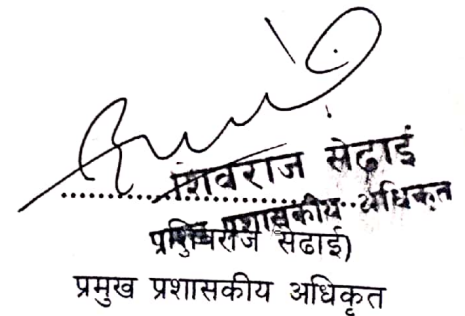 शिवराज सेढाई
प्रमुख प्रशासकीय अधिकृत
(शिवराज सेढाई)
प्रमुख प्रशासकीय अधिकृत